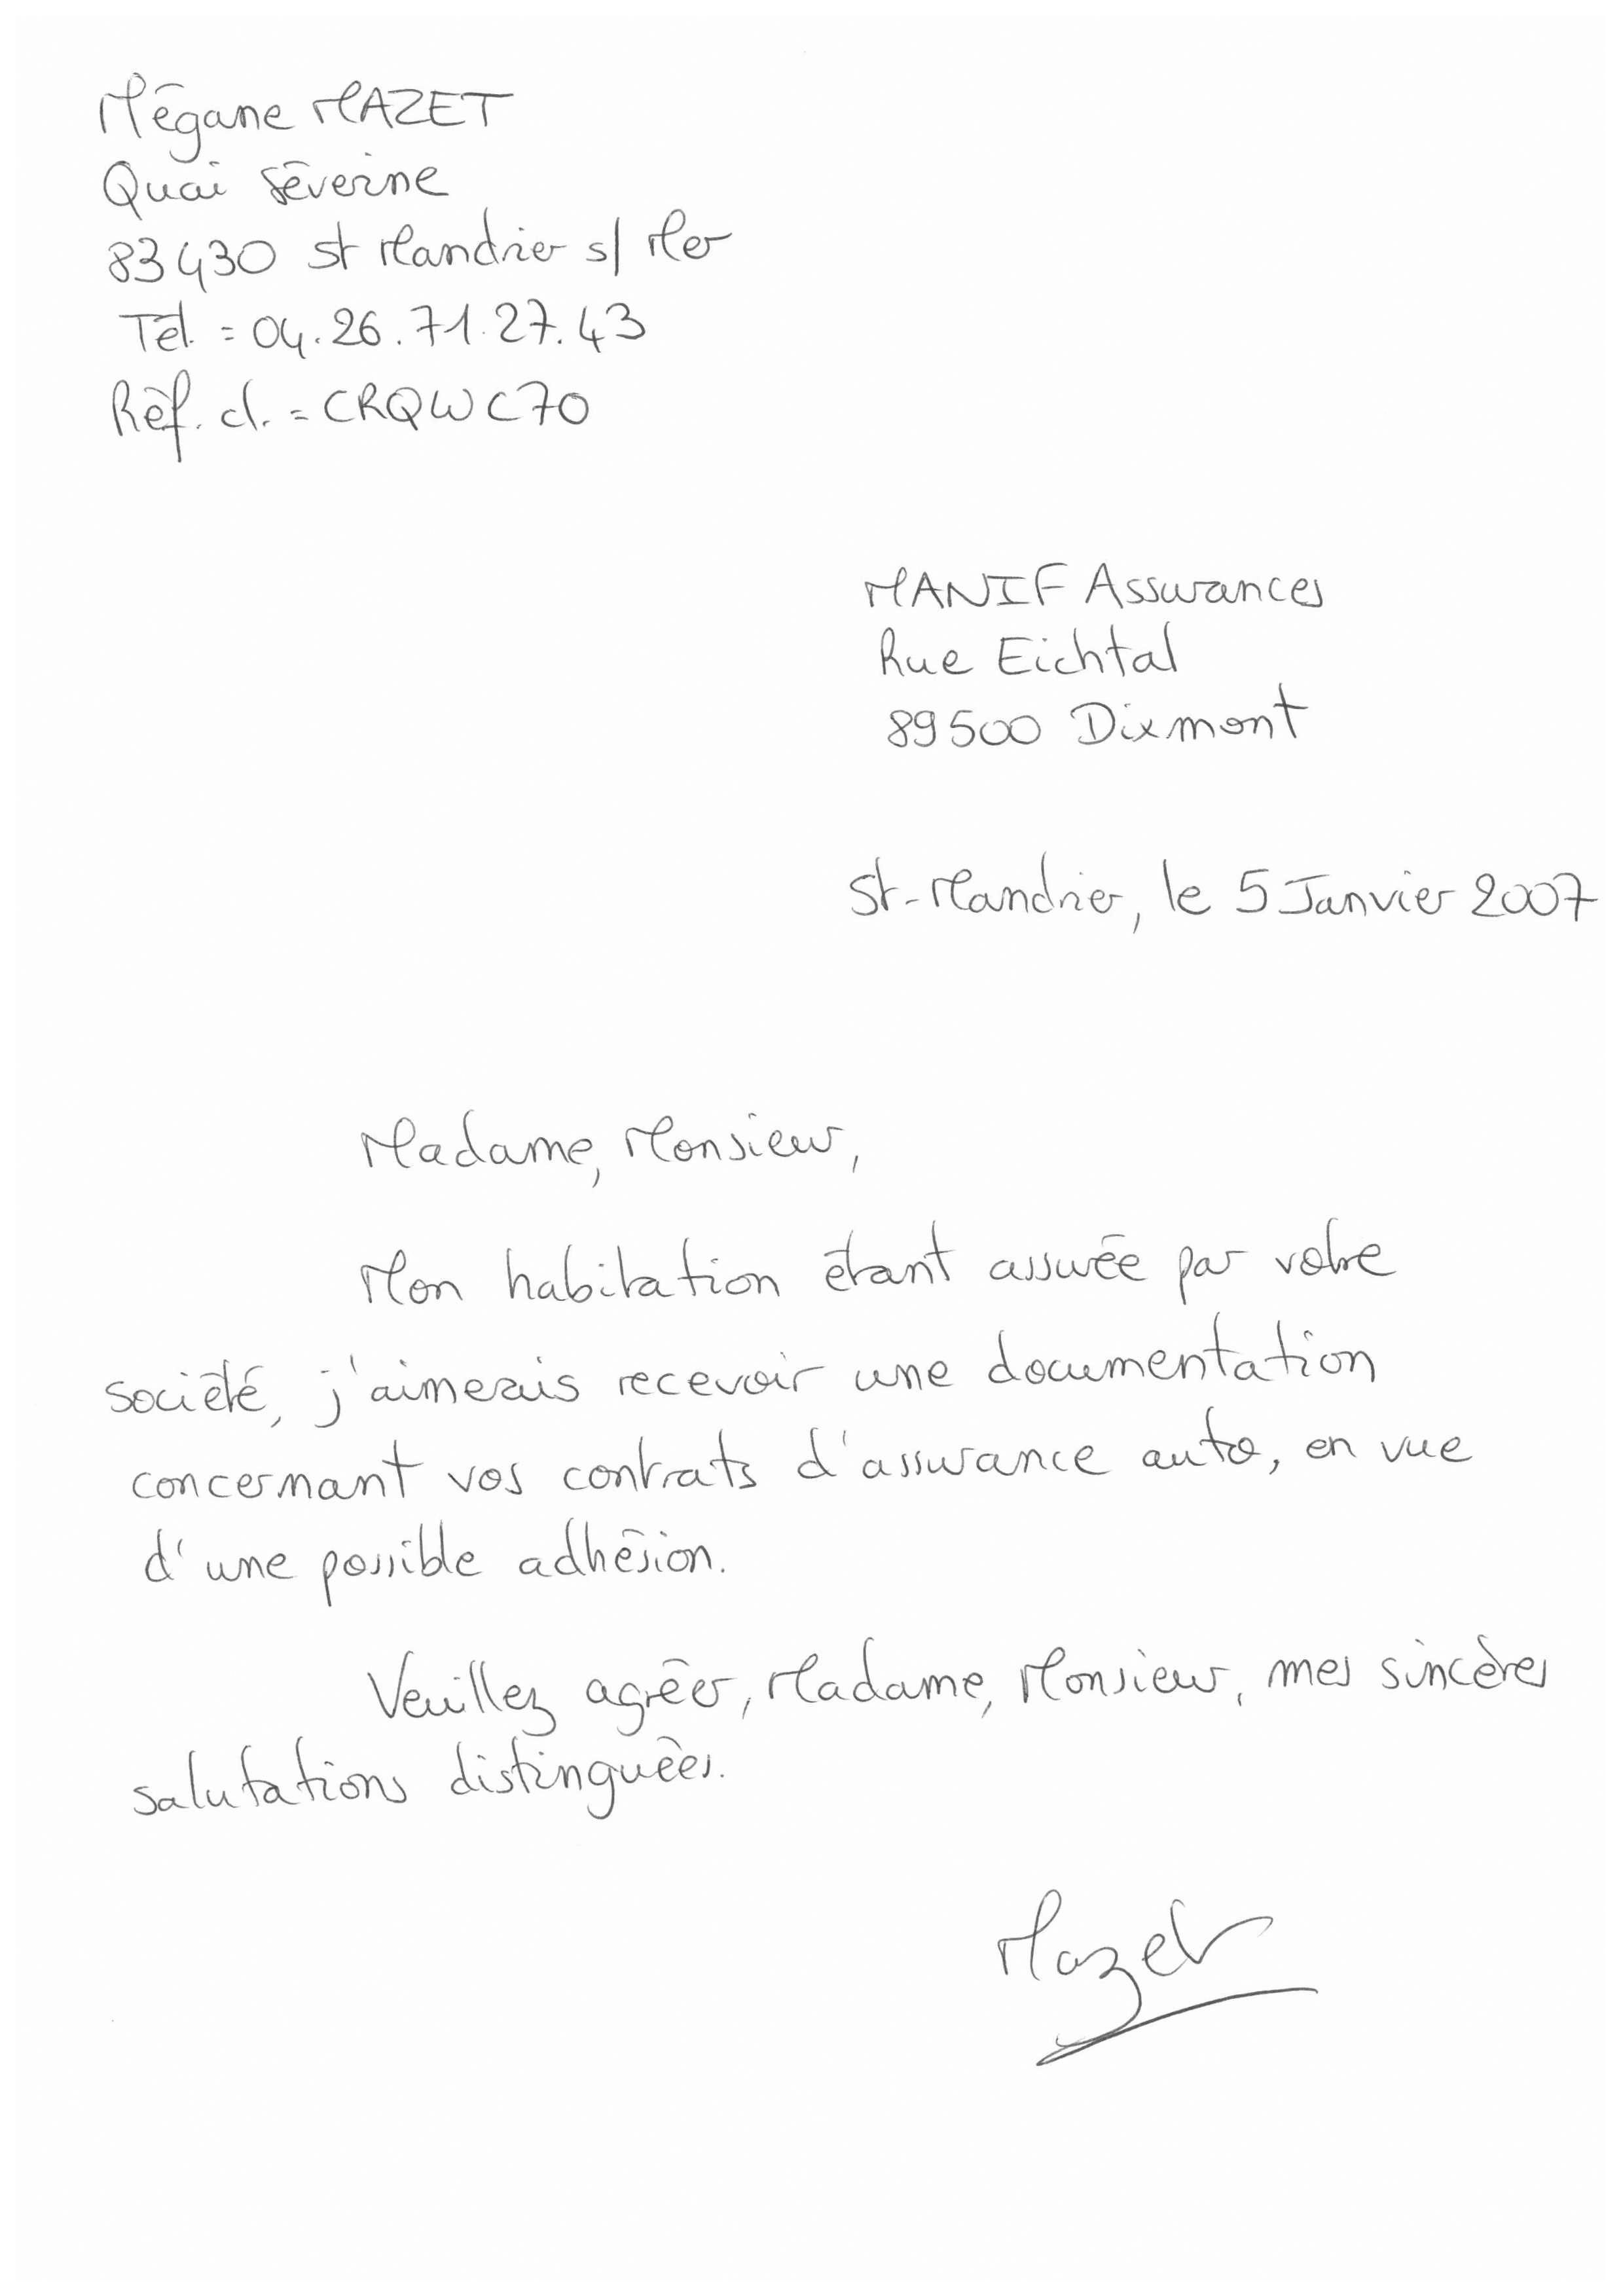 Mégane MAZET
Quai Séverine
83430 St Mandrier s/ Mer
Tél. = 04.26.71.27.43
Réf. cl. = CRQWC70
MANIF Assurances
Rue Eichtal
89500 Dixmont
St-Mandrier, le 5 Janvier 2007
Madame, Monsieur,
Mon habitation étant assurée par votre
société, j'aimerais recevoir une documentation
concernant vos contrats d'assurance auto, en vue
d'une possible adhésion.
Veuillez agréer, Madame, Monsieur, mes sincères
salutations distinguées.
Mazet